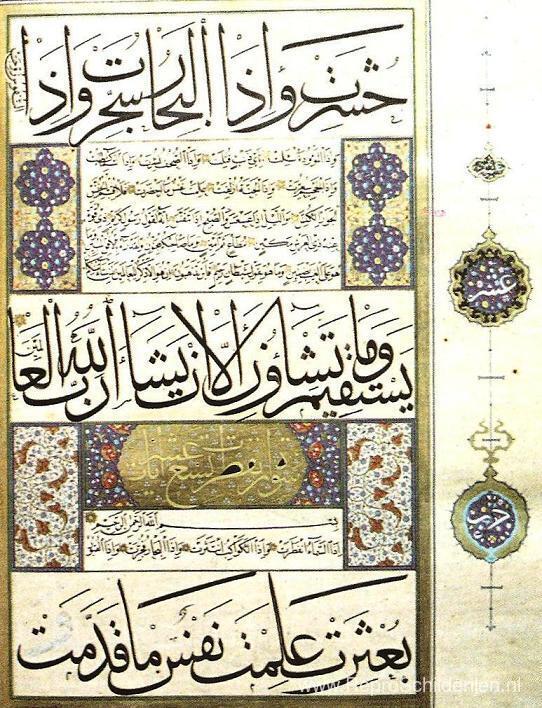 حُشِرَتْ وَإِذَا الْبِحَارُ سُجِّرَتْ وَإِذَا
النُّفُوسُ زُوِّجَتْ
وَإِذَا الْمَوْءُودَةُ سُئِلَتْ بِأَيِّ ذَنْبٍ قُتِلَتْ وَإِذَا الصُّحُفُ نُشِرَتْ وَإِذَا السَّمَاءُ كُشِطَتْ
وَإِذَا الْجَحِيمُ سُعِّرَتْ وَإِذَا الْجَنَّةُ أُزْلِفَتْ عَلِمَتْ نَفْسٌ مَا أَحْضَرَتْ فَلَا أُقْسِمُ بِالْخُنَّسِ
الْجَوَارِ الْكُنَّسِ وَاللَّيْلِ إِذَا عَسْعَسَ وَالصُّبْحِ إِذَا تَنَفَّسَ إِنَّهُ لَقَوْلُ رَسُولٍ كَرِيمٍ ذِي قُوَّةٍ
عِنْدَ ذِي الْعَرْشِ مَكِينٍ مُطَاعٍ ثَمَّ أَمِينٍ وَمَا صَاحِبُكُمْ بِمَجْنُونٍ وَلَقَدْ رَآهُ بِالْأُفُقِ الْمُبِينِ وَمَا
هُوَ عَلَى الْغَيْبِ بِضَنِينٍ وَمَا هُوَ بِقَوْلِ شَيْطَانٍ رَجِيمٍ فَأَيْنَ تَذْهَبُونَ إِنْ هُوَ إِلَّا ذِكْرٌ لِلْعَالَمِينَ لِمَنْ شَاءَ مِنْكُمْ أَنْ
يَسْتَقِيمَ وَمَا تَشَاؤُنَ إِلَّا أَنْ يَشَاءَ اللَّهُ رَبُّ الْعَالَمِينَ
سورة انفطرت تسع عشر آيات
بِسْمِ اللَّهِ الرَّحْمَنِ الرَّحِيمِ
إِذَا السَّمَاءُ انْفَطَرَتْ وَإِذَا الْكَوَاكِبُ انْتَثَرَتْ وَإِذَا الْبِحَارُ فُجِّرَتْ وَإِذَا الْقُبُورُ
بُعْثِرَتْ عَلِمَتْ نَفْسٌ مَا قَدَّمَتْ
عشر
حزب
www.reproschilderijen.nl